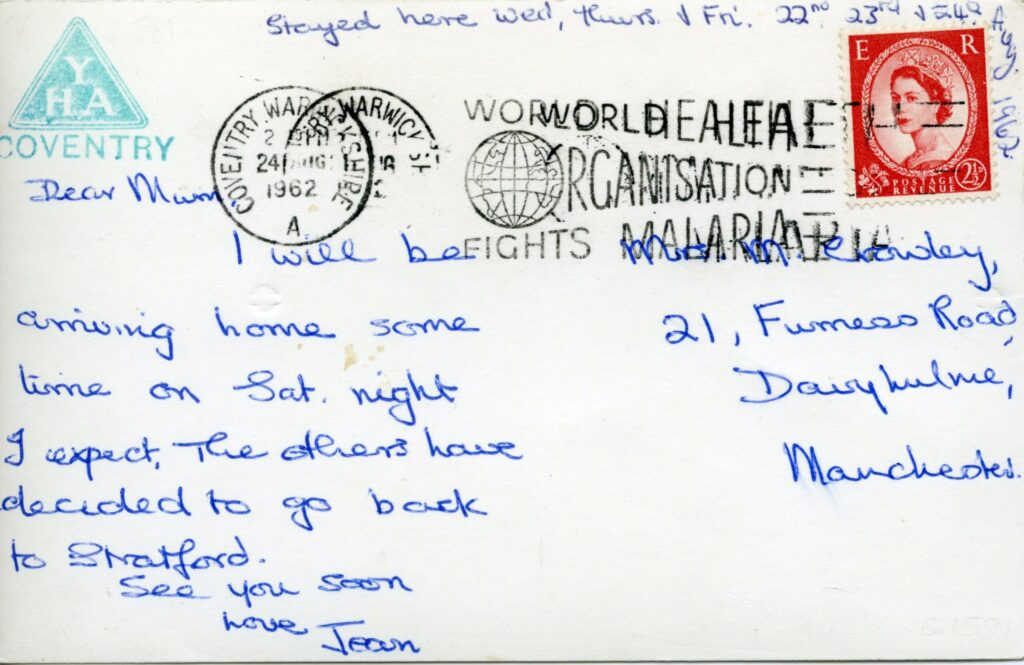 Stayed here Wed, Thurs. & Fri. 22nd 23rd & 24th Aug. 1962
YHA
COVENTRY
COVENTRY WARWICKSHIRE
24 AUG
1962
A
WORLD HEALTH
ORGANISATION
FIGHTS MALARIA
E R
POSTAGE
REVENUE
2½D
Dear Mum
I will be
arriving home some
time on Sat. night
I expect. The others have
decided to go back
to Stratford.
See you soon
love Jean
Mrs. M. Crowley,
21, Furness Road,
Davyhulme,
Manchester.